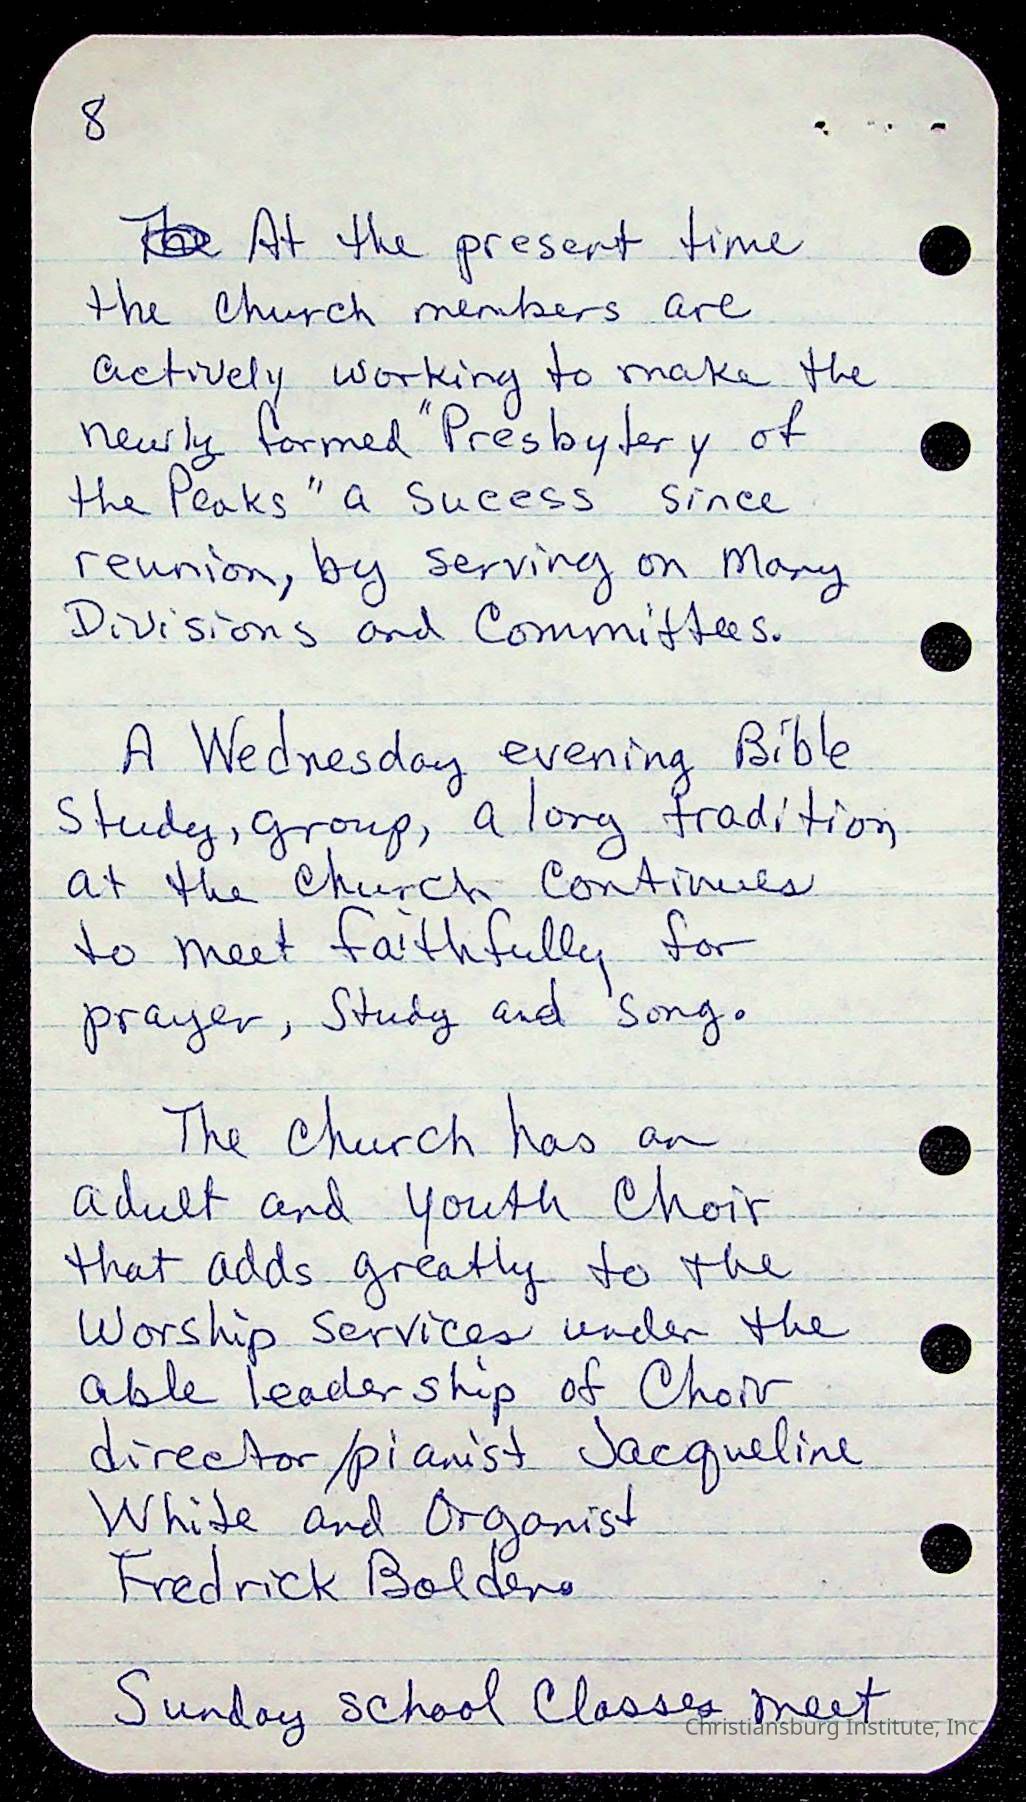 8
The At the present time
the Church members are
actively working to make the
newly formed "Presbytery of
the Peaks" a Sucess since
reunion, by serving on Many
Divisions and Committees.
A Wednesday evening Bible
Study, group, a long tradition
at the Church Continues
to meet faithfully for
prayer, Study and Song.
The Church has an
adult and youth Choir
that adds greatly to the
Worship Services under the
able leadership of Choir
director/pianist Jacqueline
White and Organist
Fredrick Bolden.
Sunday school Classes meet
Christiansburg Institute, Inc